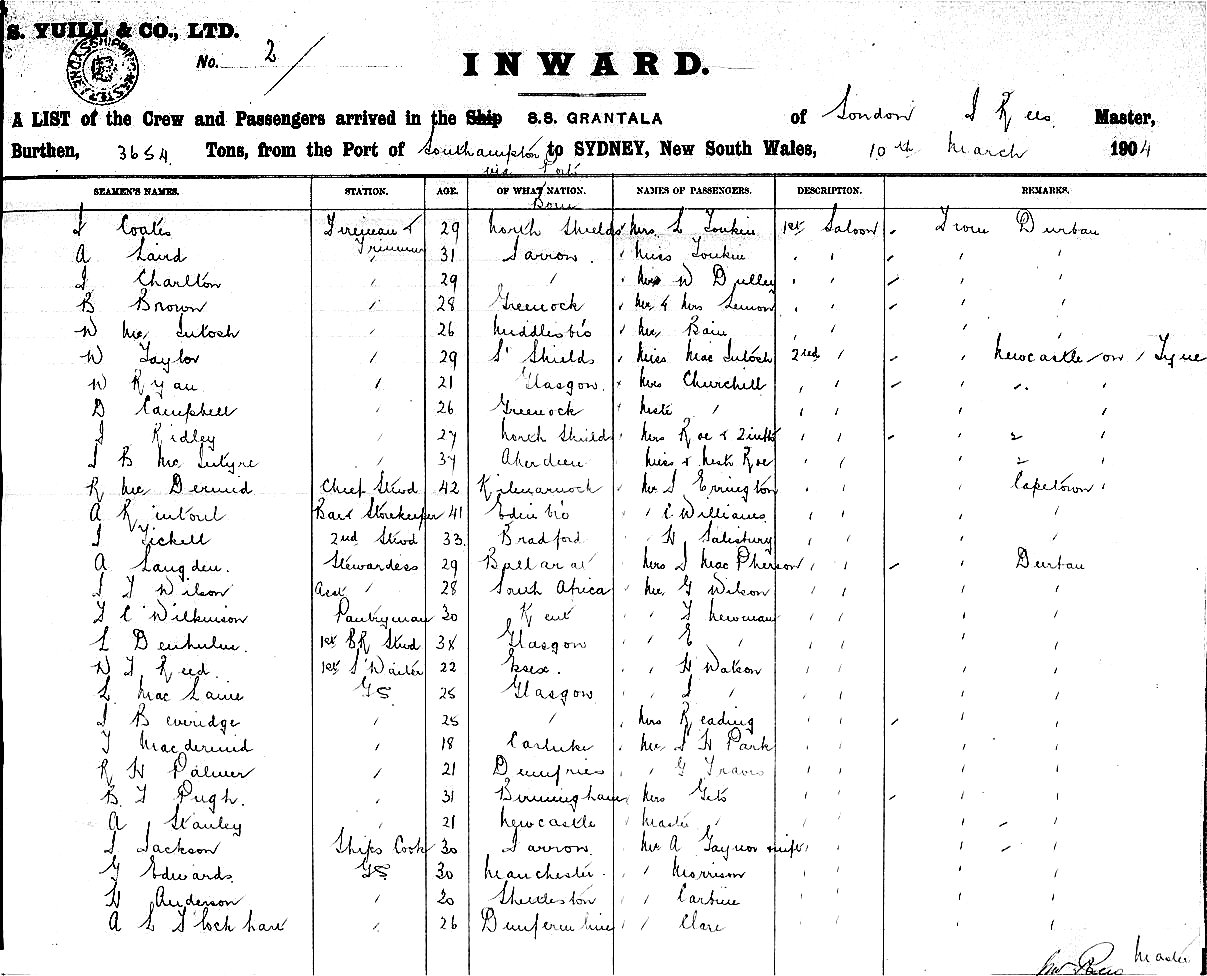 S. YUILL & CO., LTD.
No. 2
INWARD.
A LIST of the Crew and Passengers arrived in the Ship S.S. GRANTALA of London J Rees Master,
Burthen, 3654 Tons, from the Port of Southampton to SYDNEY, New South Wales, 10th March 1904
via Ports
SEAMEN'S NAMES. STATION. AGE. OF WHAT NATION. NAMES OF PASSENGERS. DESCRIPTION. REMARKS.
Born
J Coates Fireman & 29 North Shields Mrs L Tonkin 1st Saloon From Durban
Trimmer
A Laird " 31 Jarrow. Miss Tonkin " " " "
J Charlton " 29 " Mrs W Dulley " " " "
B Brown " 28 Greenock Mr & Mrs Lemon " " " "
W Mc Intosh " 26 Middlesbro Mr Bain " " " "
W Taylor " 29 S' Shields Miss Mac Intosh 2nd " " Newcastle on Tyne
W Ryan " 21 Glasgow. Mrs Churchill " " " "
D Campbell " 26 Greenock Mast " " " " "
J Ridley " 27 North Shields Mrs Roe & 2 infts " " " "
J B Mc Intyre " 37 Aberdeen Miss & Mast Roe " " " "
R Mc Dermid Chief Stwd 42 Kilmarnock Mr J Errington " " " Capetown
A Rintoul Bar Storekeeper 41 Edinbro " C Williams " " " "
J Tickell 2nd Stwd 33 Bradford " H Salisbury " " " "
A Langden. Stewardess 29 Ballarat Mrs J Mac Pherson " " " Durban
J T Wilson Asst " 28 South Africa Mr G Wilson " " " "
F C Wilkinson Pantryman 30 Kent " F Newman " " " "
L Denholm 1st BR Stwd 38 Glasgow " E " " " " "
W J Reed. 1st S Waiter 22 Essex. " H Watson " " " "
L Mac Laine GS 25 Glasgow " J " " " " "
J Beveridge " 25 " Mrs Reading " " " "
J Macdermid " 18 Carluke Mr J H Park " " " "
R H Palmer " 21 Dumfries " G Travis " " " "
B J Pugh. " 31 Birmingham Mrs Gets " " " "
A Stanley " 21 Newcastle Master " " " " "
J Jackson Ships Cook 30 Jarrow Mr A Gaynor " " " "
G Edwards. GS 30 Manchester. " Morrison " " " "
H Anderson " 20 Shettleston " Carbine " " " "
A L Flockhart " 26 Dunfermline " Clare " " " "
Rees Master